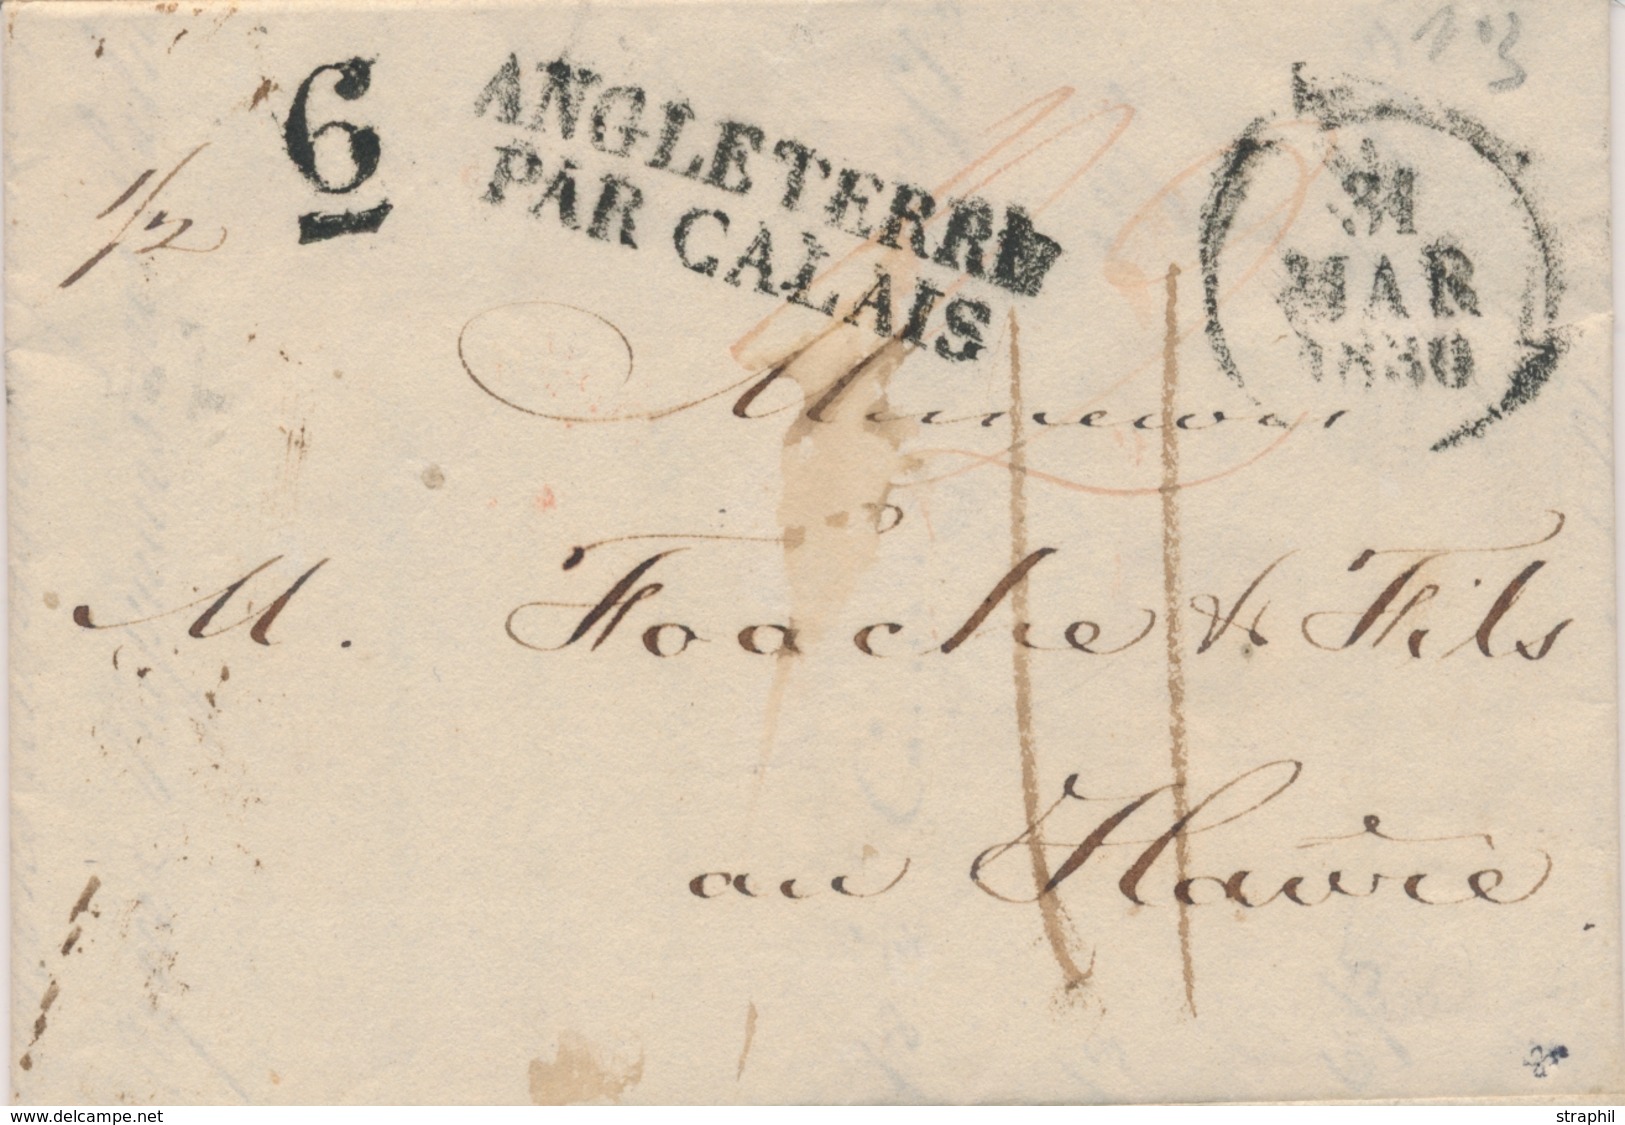 1·3
6
1/2
ANGLETERRE
PAR CALAIS
31
MAR
1830
M. Foache & Fils
au Havre.
www.delcampe.net
straphil